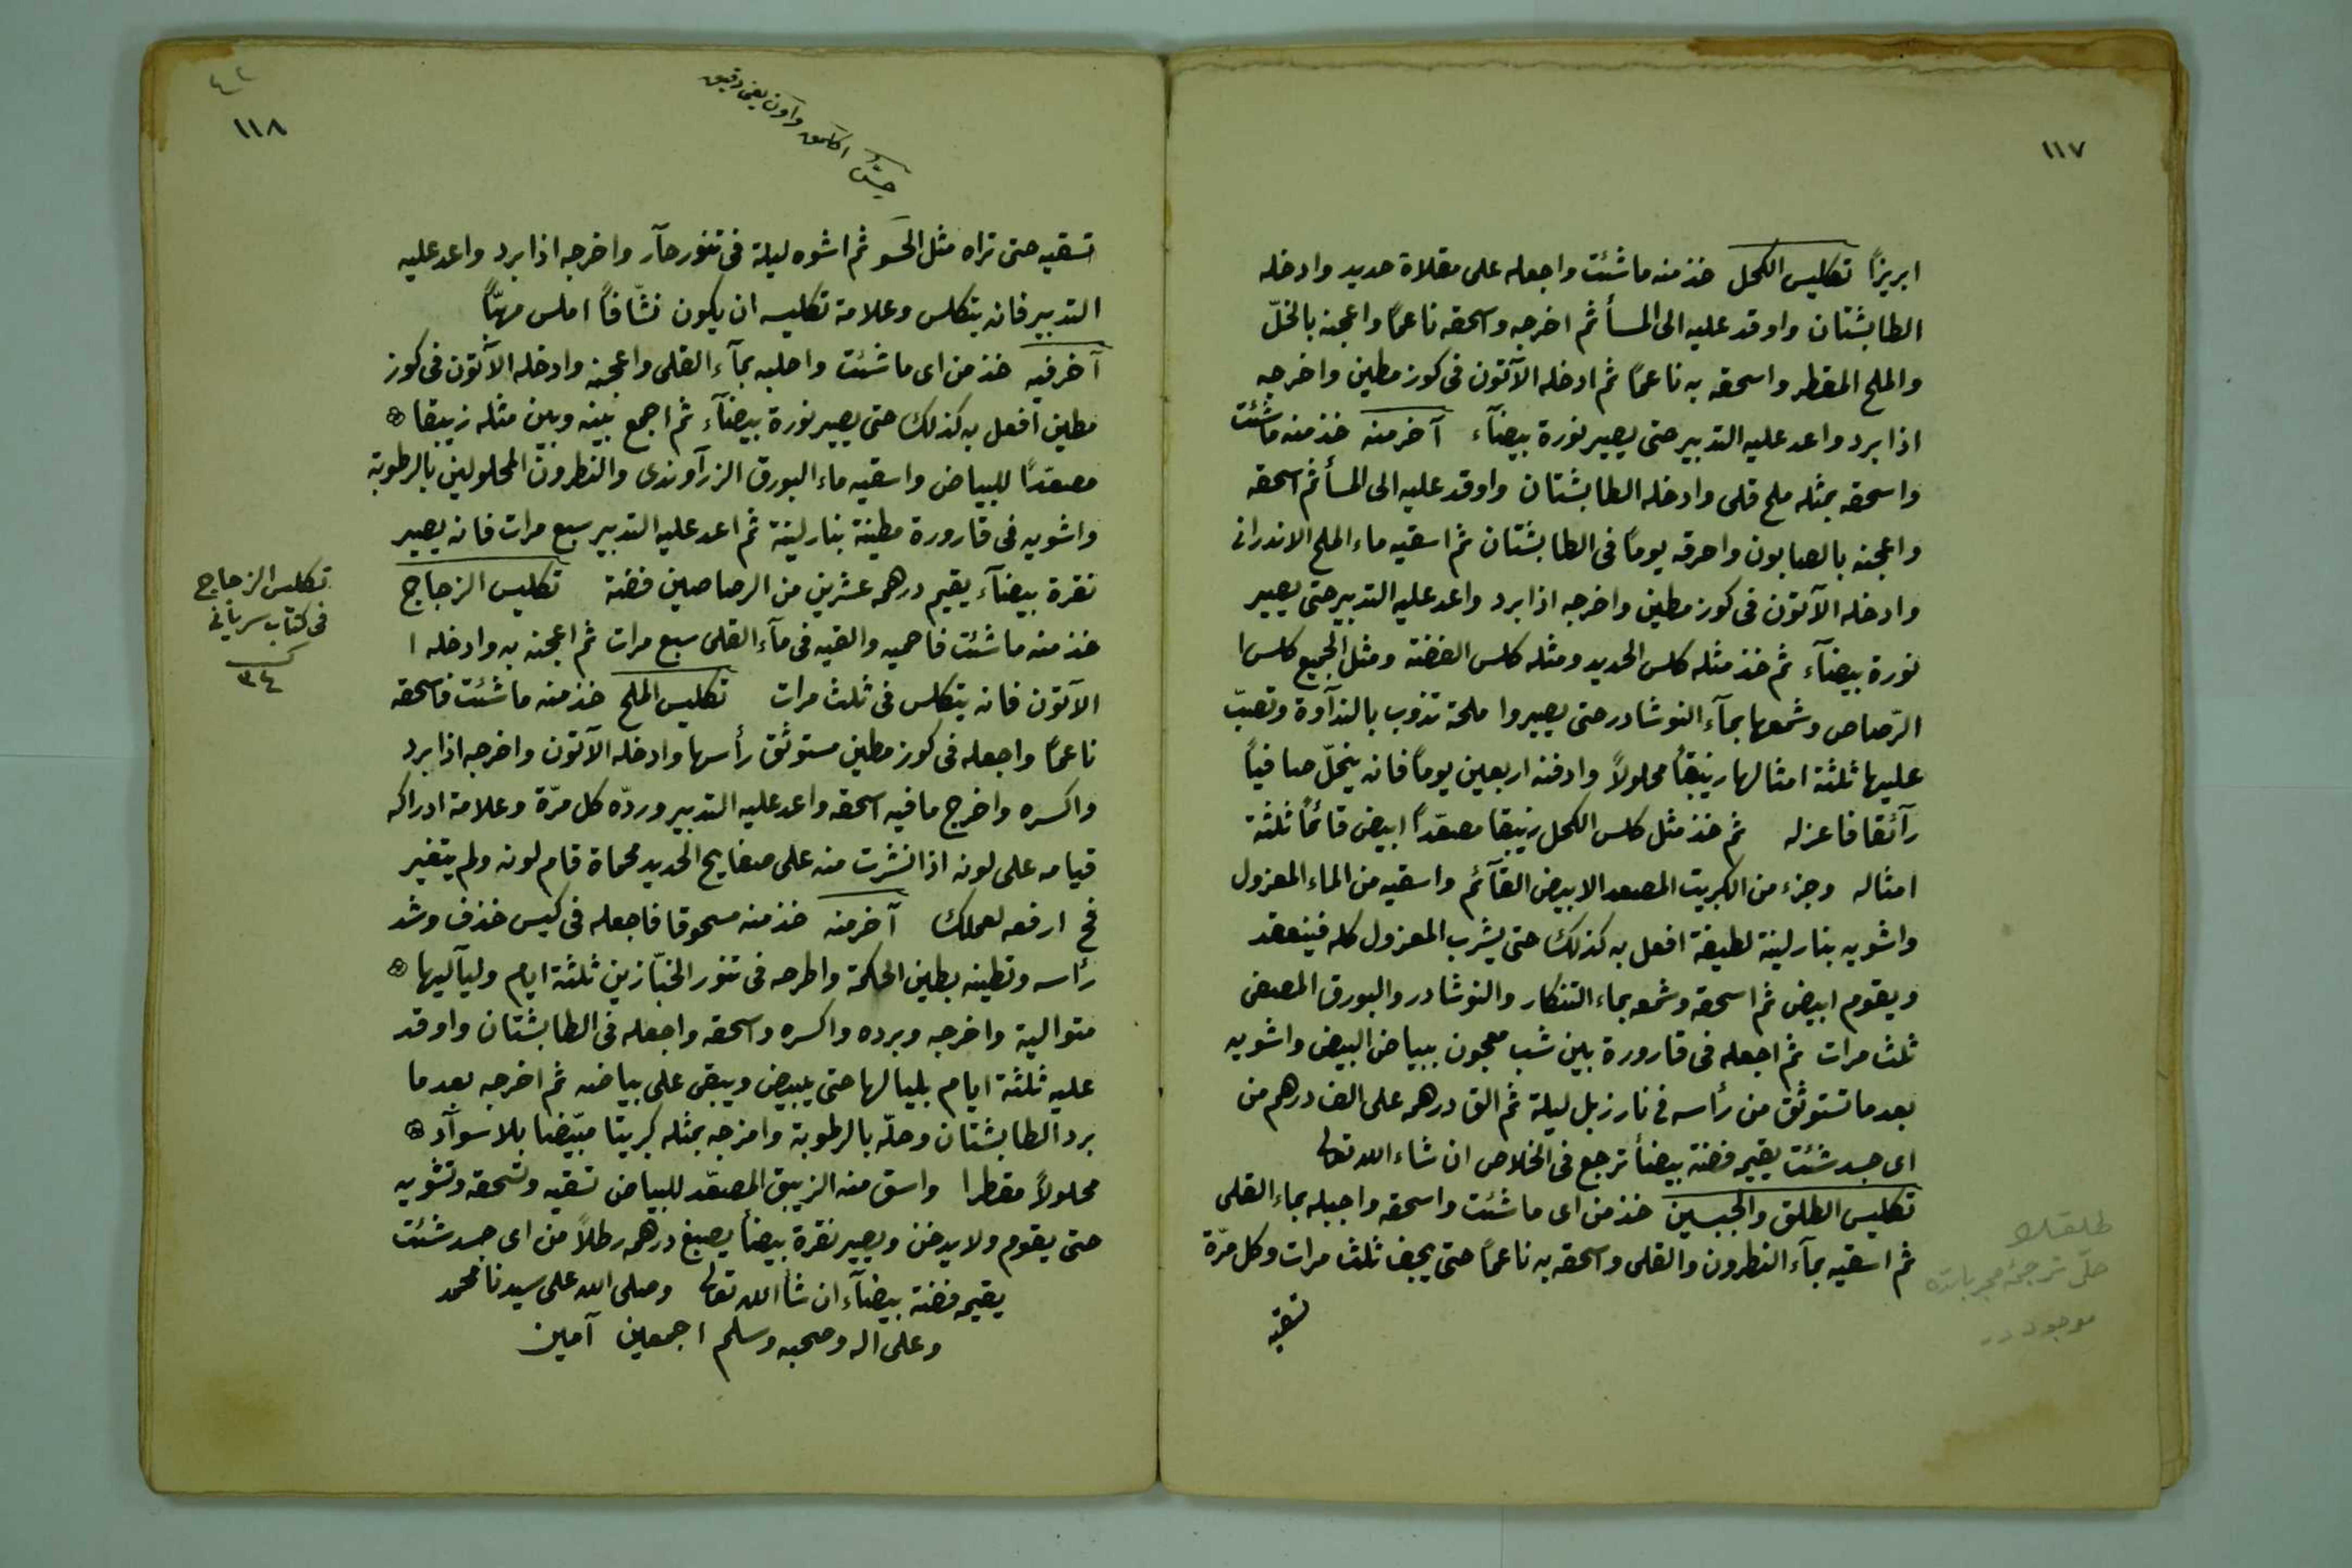 ١١٧
ابريزًا تكليس الكحل خذ منه ما شئت واجعله على مقلاة حديد وادخله
الطابشتان واوقد عليه الى المسأ ثم اخرجه واسحقه ناعمًا واعجنه بالخلّ
والملح المقطر واسحقه به ناعمًا ثم ادخله الآتون فى كوز مطين واخرجه
اذا برد واعد عليه التدبير حتى يصير نورة بيضآء آخر منه خذ منه ما شئت
واسحقه بمثله ملح قلى وادخله الطابشتان واوقد عليه الى المسأ ثم اسحقه
واعجنه بالصابون واحرقه يومًا فى الطابشتان ثم اسقيه ماء الملح الاندرانى
وادخله الآتون فى كوز مطين واخرجه اذا برد واعد عليه التدبير حتى يصير
نورة بيضآء ثم خذ مثله كلس الحديد ومثله كلس الفضة ومثل الجميع كلس ا
الرّصاص وشمعها بمآء النوشادر حتى يصيروا ملحة تذوب بالندآوة وتصبّ
عليها ثلثة امثالها زيبقًا محلولاً وادفنه اربعين يومًا فانه ينحلّ صافيًا
رآئقا فاعزله ثم خذ مثل كلس الكحل زيبقا مصعّدًا ابيض قائمًا ثلثة
امثاله وجزء من الكبريت المصعد الابيض القآئم واسقيه من الماء المعزول
واشويه بنار لينة لطيفة افعل به كذلك حتى يشرب المعزول كله فينعقد
ويقوم ابيض ثم اسحقه وشمعه بماء التنكار والنوشادر والبورق المصفى
ثلث مرات ثم اجعله فى قارورة بين شب معجون ببياض البيض واشويه
بعد ما تستوثق من رأسه فى نار زبل ليلة ثم الق درهم على الف درهم من
اى جسد شئت يقيم فضة بيضأ ترجع فى الخلاص ان شاء الله تعالى
تكليس الطلق والجبسين خذ من اى ما شئت واسحقه واجبله بماء القلى
ثم اسقيه بمآء النطرون والقلى واسحقه به ناعمًا حتى يجف ثلث مرات وكل مرّة
تسقيه
حلّ ترجمۀ مجرباتده
موجوددر
٤٢
١١٨
تسقيه حتى تراه مثل الحَسَو ثم اشوه ليلة فى تنور حآر واخرجه اذا برد واعد عليه
التدبير فانه يتكلس وعلامة تكليسه ان يكون نشّافًا املس مهبًّا
آخر فيه خذ من اى ما شئت واحلبه بمآء القلى واعجنه وادخله الآتون فى كوز
مطين افعل به كذلك حتى يصير نورة بيضآء ثم اجمع بينه وبين مثله زيبقا
مصعّدًا للبياض واسقيه ماء البورق الزرآوندى والنطرون المحلولين بالرطوبة
واشويه فى قارورة مطينة بنار لينة ثم اعد عليه التدبير سبع مرات فانه يصير
نقرة بيضآء يقيم درهم عشرين من الرصاصين فضة تكليس الزجاج
خذ منه ما شئت فاحميه والقيه فى مآء القلى سبع مرات ثم اعجنه به وادخله ا
الآتون فانه يتكلس فى ثلث مرات تكليس الملح خذ منه ما شئت فاسحقه
ناعمًا واجعله فى كوز مطين مستوثق رأسها وادخله الآتون واخرجه اذا برد
واكسره واخرج ما فيه اسحقه واعد عليه التدبير وردّه كل مرّة وعلامة ادراكه
قيامه على لونه اذا نشرت منه على صفايح الحديد محماة قام لونه ولم يتغير
فح ارفعه لعملك آخر منه خذ منه مسحوقا فاجعله فى كيس خذف وشد
رأسه وتطينه بطين الحكمة واطرحه فى تنور الخبّازين ثلثة ايام وليآليها
متوالية واخرجه وبرده واكسره واسحقه واجعله فى الطابشتان واوقد
عليه ثلثة ايام بليالها حتى يبيض ويبقى على بياضه ثم اخرجه بعد ما
برد الطابشتان وحلّه بالرطوبة وامزجه بمثله كبريتا مبيّضا بلا سوآد
محلولاً مقطرا واسق منه الزيبق المصعّد للبياض تسقيه وتسحقه وتشويه
حتى يقوم ولا يدخن ويصير نقرة بيضأ يصبغ درهم رطلاً من اى جسد شئت
يقيم فضة بيضآء ان شأ الله تعالى وصلى الله على سيدنا محمد
وعلى اله وصحبه وسلم اجمعين آمين
تكليس الزجاج
فى كتاب سريانى
٣٤